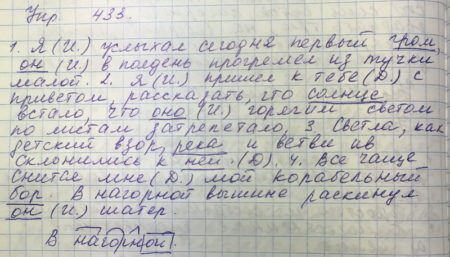 Упр. 433.
1. Я (И.) услыхал сегодня первый гром,
он (И.) в полдень прогремел из тучки
малой. 2. Я (И.) пришел к тебе (Д.) с
приветом, рассказать, что солнце
встало, что оно (И.) горячим светом
по листам затрепетало, 3. Светла, как
детский взор, река и ветви ив
склонились к ней. (Д). 4. Все чаще
снится мне (Д.) мой корабельный
бор. В нагорной вышине раскинул
он (И.) шатер.
В нагорной.